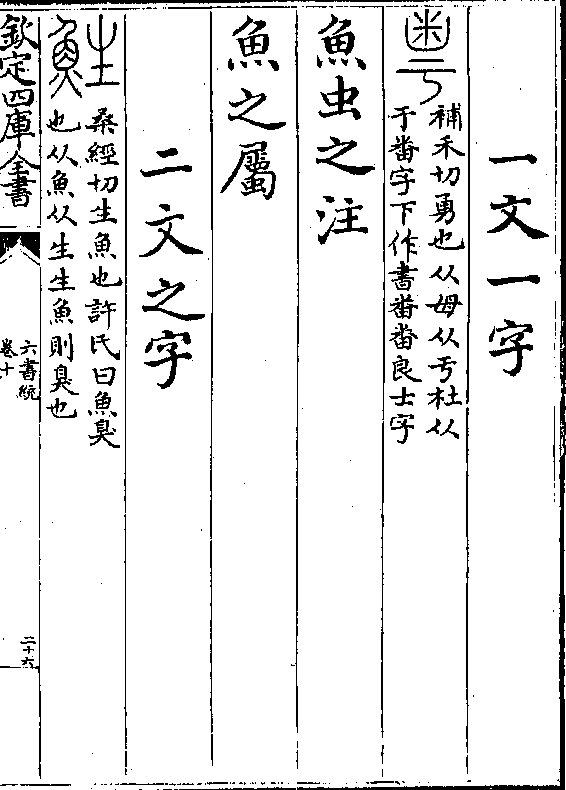 一文一字
補禾切勇也从母从亏杜从
于畨字下作書畨畨良士字
魚虫之注
魚之屬
二文之字
桑經切生魚也許氏曰魚臭
也从魚从生生魚則臭也
欽定四庫全書
六書統
卷十
二十六